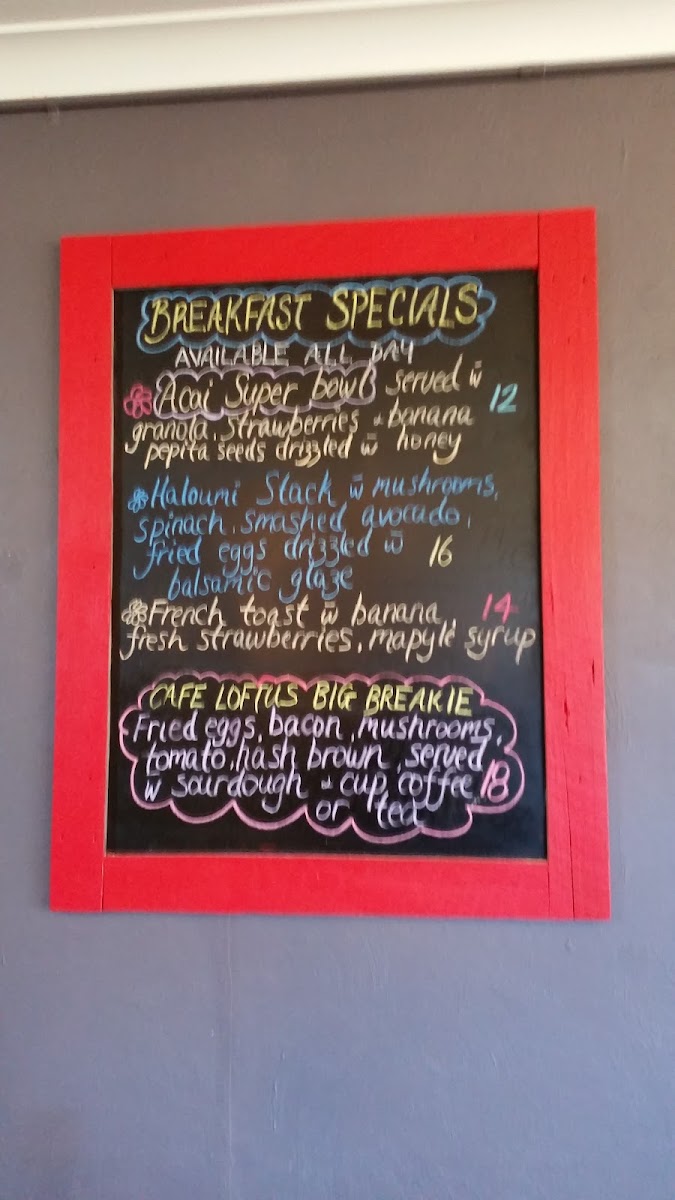 BREAKFAST SPECIALS
AVAILABLE ALL DAY
Acai Super bowl served w̄ 12
granola, strawberries & banana
pepita seeds drizzled w̄ honey
Haloumi Stack w̄ mushrooms,
spinach, smashed avocado,
fried eggs drizzled w̄ 16
balsamic glaze
French toast w̄ banana, 14
fresh strawberries, mapyle syrup
CAFE LOFTUS BIG BREAKIE
Fried eggs, bacon, mushrooms,
tomato, hash brown, served
w̄ sourdough & cup coffee 18
or tea